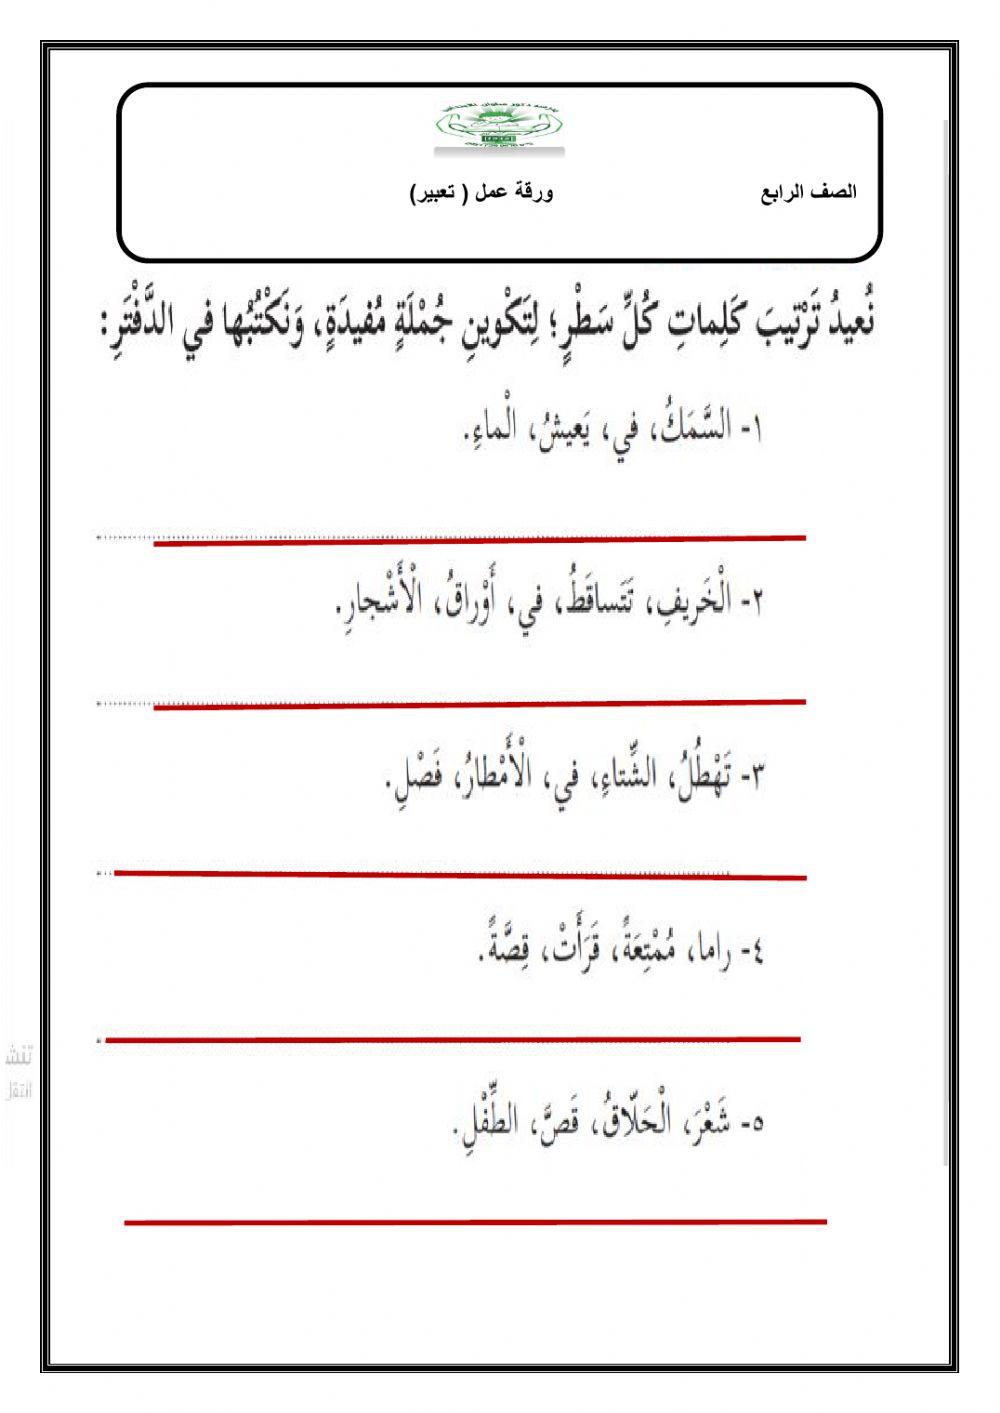 الصف الرابع ورقة عمل ( تعبير)
نُعيدُ تَرْتيبَ كَلِماتِ كُلِّ سَطْرٍ؛ لِتَكْوينِ جُمْلَةٍ مُفيدَةٍ، وَنَكْتُبُها في الدَّفْتَرِ:
١- السَّمَكُ، في، يَعيشُ، الْماءِ.
٢- الْخَريفِ، تَتَساقَطُ، في، أَوْراقُ، الْأَشْجارِ.
٣- تَهْطُلُ، الشِّتاءِ، في، الْأَمْطارُ، فَصْلِ.
٤- راما، مُمْتِعَةً، قَرَأَتْ، قِصَّةً.
٥- شَعْرَ، الْحَلّاقُ، قَصَّ، الطِّفْلِ.